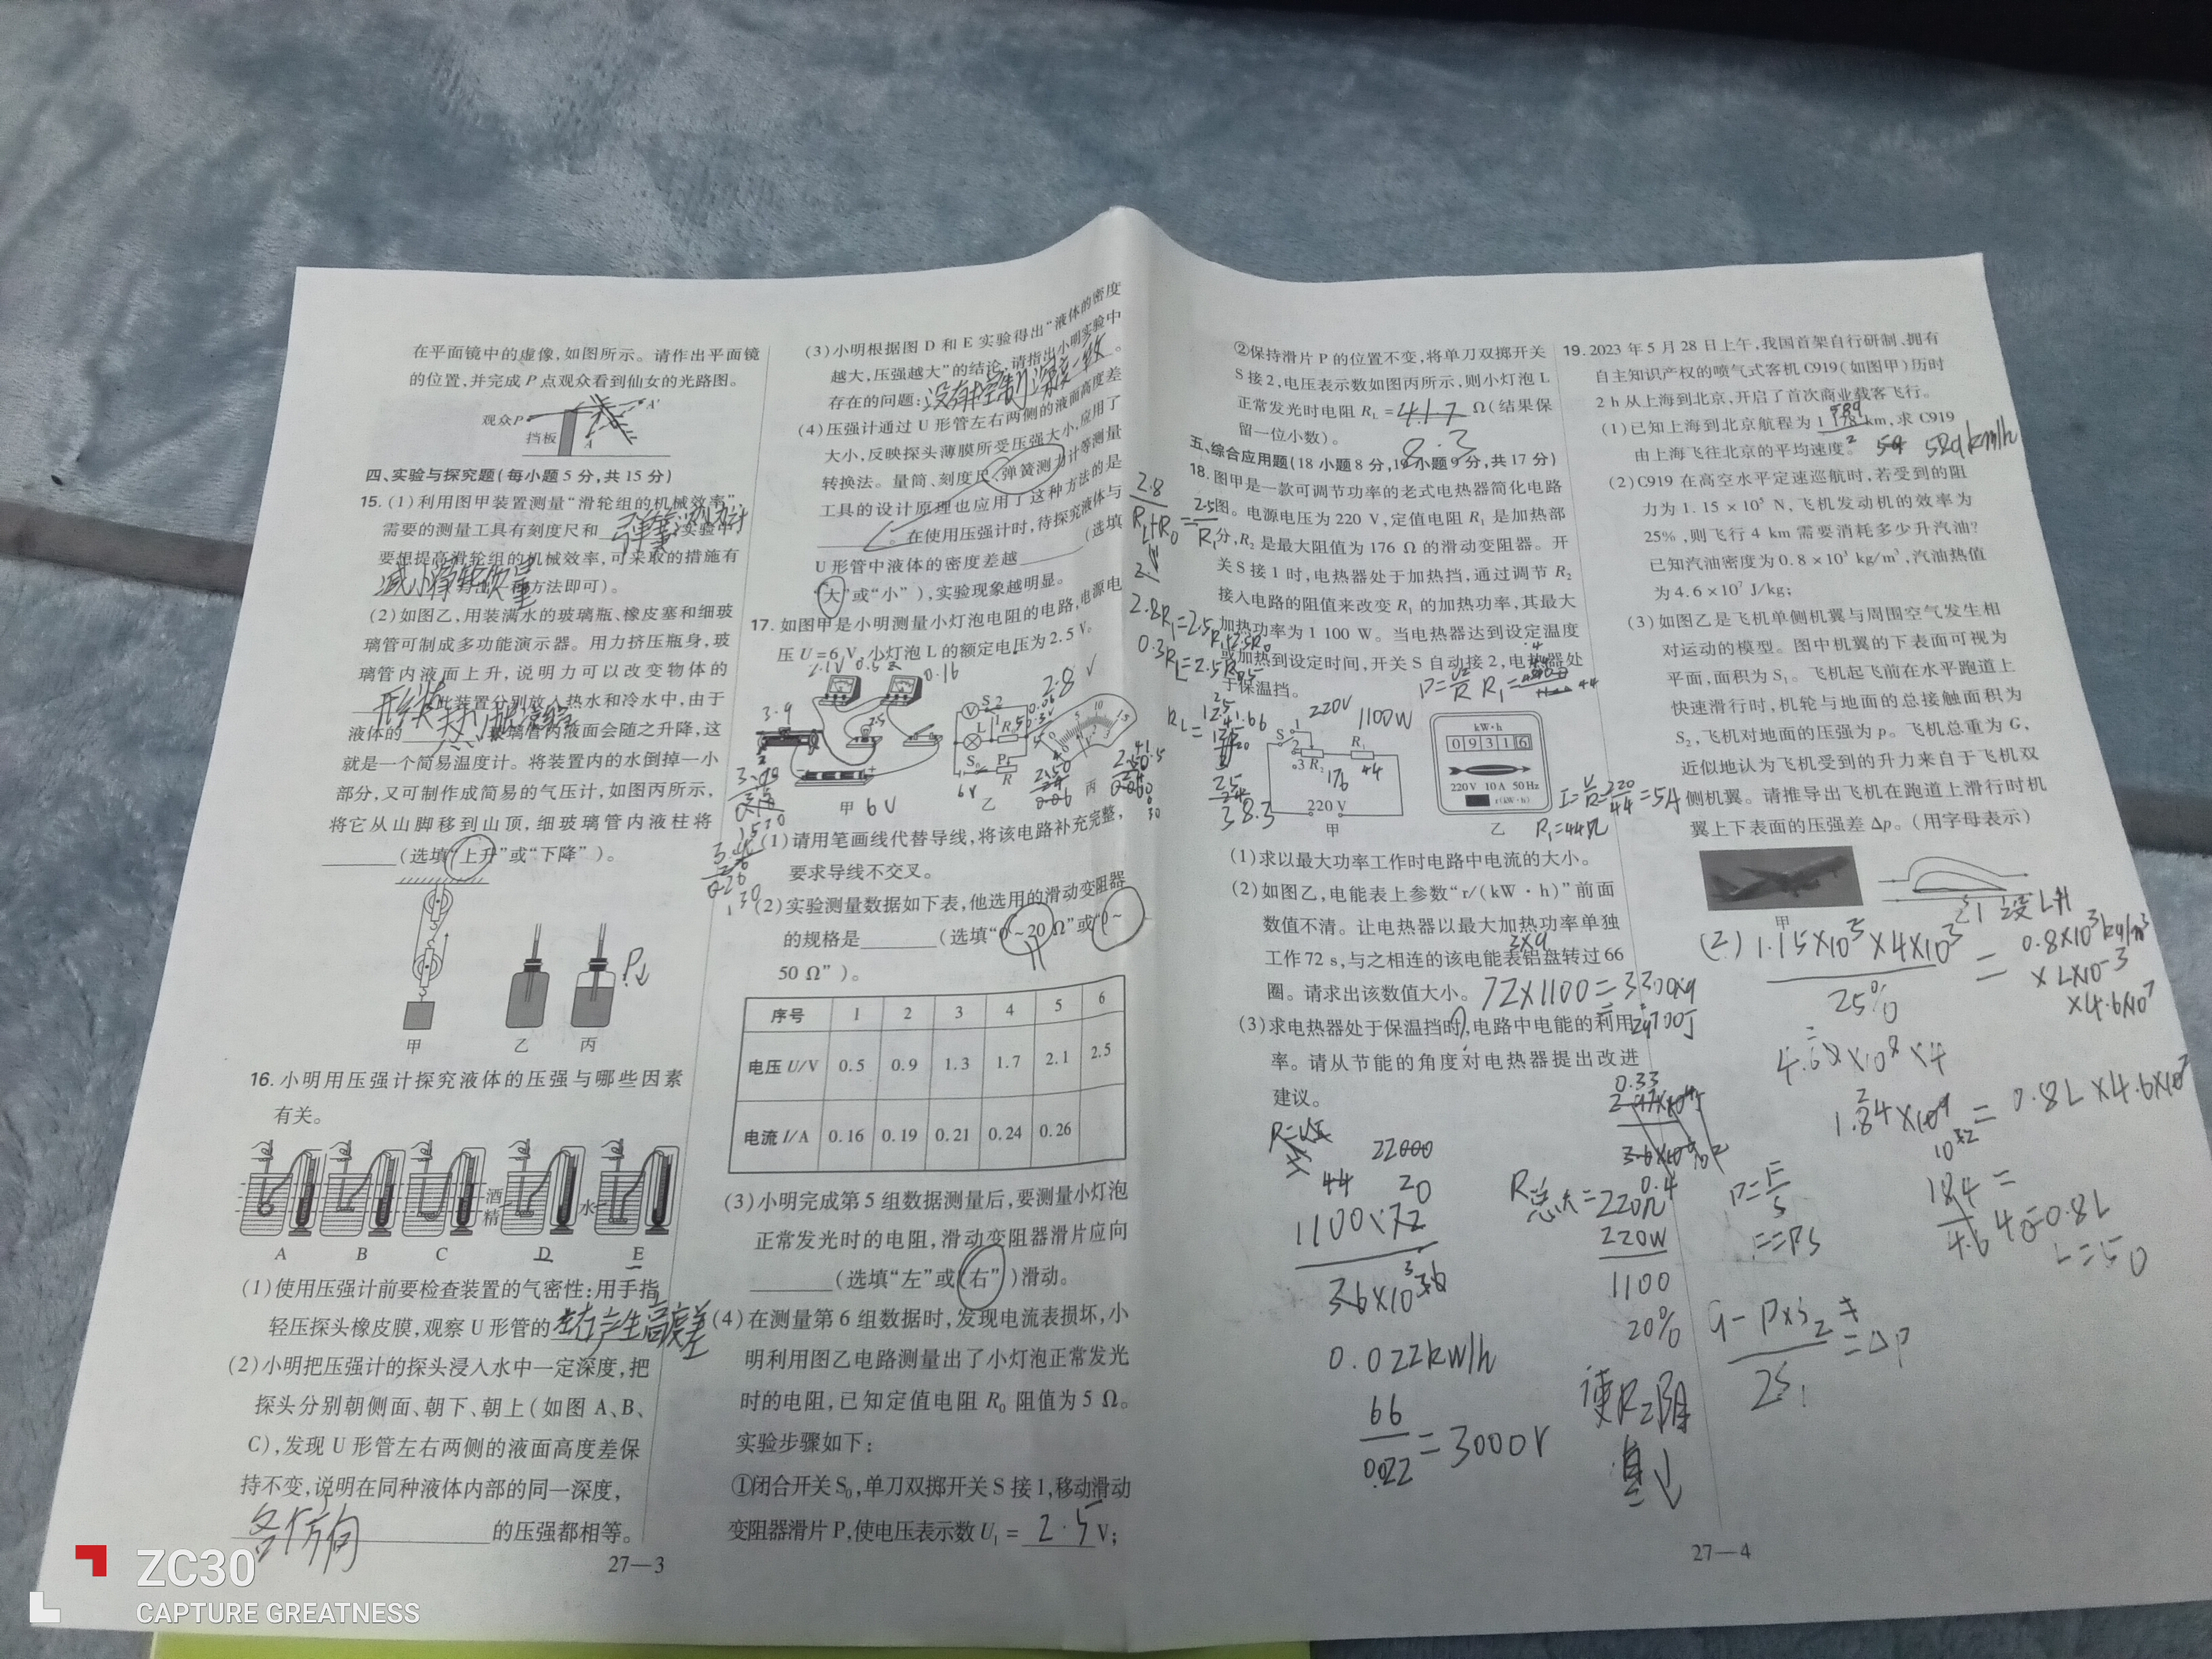 在平面镜中的虚像,如图所示。请作出平面镜
的位置,并完成P点观众看到仙女的光路图。
观众P
A'
挡板
A
四、实验与探究题(每小题5分,共15分)
15.(1)利用图甲装置测量“滑轮组的机械效率”,
需要的测量工具有刻度尺和 弹簧测力计 实验中
要想提高滑轮组的机械效率,可采取的措施有
减小滑轮质量 方法即可)。
(2)如图乙,用装满水的玻璃瓶、橡皮塞和细玻
璃管可制成多功能演示器。用力挤压瓶身,玻
璃管内液面上升,说明力可以改变物体的
形状 此装置分别放入热水和冷水中,由于
液体的 玻璃管内液面会随之升降,这
就是一个简易温度计。将装置内的水倒掉一小
部分,又可制作成简易的气压计,如图丙所示,
将它从山脚移到山顶,细玻璃管内液柱将
(选填“上升”或“下降”)。
P↓
甲 乙 丙
16.小明用压强计探究液体的压强与哪些因素
有关。
酒精
水
A B C D E
(1)使用压强计前要检查装置的气密性:用手指
轻压探头橡皮膜,观察U形管的 左右产生高度差
(2)小明把压强计的探头浸入水中一定深度,把
探头分别朝侧面、朝下、朝上(如图A、B、
C),发现U形管左右两侧的液面高度差保
持不变,说明在同种液体内部的同一深度,
各个方向 的压强都相等。
27—3
(3)小明根据图D和E实验得出“液体的密度
越大,压强越大”的结论,请指出小明实验中
存在的问题: 没有控制深度一致 。
(4)压强计通过U形管左右两侧的液面高度差
大小,反映探头薄膜所受压强大小,应用了
转换法。量筒、刻度尺、弹簧测力计等测量
工具的设计原理也应用了这种方法的是
。在使用压强计时,待探究液体与
U形管中液体的密度差越 (选填
“大”或“小”),实验现象越明显。
17.如图甲是小明测量小灯泡电阻的电路,电源电
压U=6V,小灯泡L的额定电压为2.5V。
2.1V
0.16
2.8
3.9
甲 6V
乙
丙
(1)请用笔画线代替导线,将该电路补充完整,
要求导线不交叉。
(2)实验测量数据如下表,他选用的滑动变阻器
的规格是 (选填“0~20Ω”或“0~
50Ω”)。
序号 1 2 3 4 5 6
电压U/V 0.5 0.9 1.3 1.7 2.1 2.5
电流I/A 0.16 0.19 0.21 0.24 0.26
(3)小明完成第5组数据测量后,要测量小灯泡
正常发光时的电阻,滑动变阻器滑片应向
(选填“左”或“右”)滑动。
(4)在测量第6组数据时,发现电流表损坏,小
明利用图乙电路测量出了小灯泡正常发光
时的电阻,已知定值电阻R₀阻值为5Ω。
实验步骤如下:
①闭合开关S₀,单刀双掷开关S接1,移动滑动
变阻器滑片P,使电压表示数U₁= 2.5 V;
②保持滑片P的位置不变,将单刀双掷开关
S接2,电压表示数如图丙所示,则小灯泡L
正常发光时电阻R_L= 41.7 Ω(结果保
留一位小数)。
8.3
五、综合应用题(18小题8分,19小题9分,共17分)
18.图甲是一款可调节功率的老式电热器简化电路
图。电源电压为220V,定值电阻R₁是加热部
分,R₂是最大阻值为176Ω的滑动变阻器。开
关S接1时,电热器处于加热挡,通过调节R₂
接入电路的阻值来改变R₁的加热功率,其最大
加热功率为1100W。当电热器达到设定温度
或加热到设定时间,开关S自动接2,电热器处
于保温挡。
220V
1100W
176
44
220V
甲
kW·h
09316
220V 10A 50Hz
r/(kW·h)
乙
R₁=44Ω
(1)求以最大功率工作时电路中电流的大小。
(2)如图乙,电能表上参数“r/(kW·h)”前面
数值不清。让电热器以最大加热功率单独
工作72s,与之相连的该电能表铝盘转过66
圈。请求出该数值大小。
(3)求电热器处于保温挡时,电路中电能的利用
率。请从节能的角度对电热器提出改进
建议。
1100×72
0.022kw/h
66
0.022
=3000r
R总大=220Ω
220W
1100
20%
使R₂阻
值↓
19.2023年5月28日上午,我国首架自行研制、拥有
自主知识产权的喷气式客机C919(如图甲)历时
2h从上海到北京,开启了首次商业载客飞行。
(1)已知上海到北京航程为1178km,求C919
由上海飞往北京的平均速度。 589km/h
(2)C919在高空水平定速巡航时,若受到的阻
力为1.15×10⁵N,飞机发动机的效率为
25%,则飞行4km需要消耗多少升汽油?
已知汽油密度为0.8×10³kg/m³,汽油热值
为4.6×10⁷J/kg;
(3)如图乙是飞机单侧机翼与周围空气发生相
对运动的模型。图中机翼的下表面可视为
平面,面积为S₁。飞机起飞前在水平跑道上
快速滑行时,机轮与地面的总接触面积为
S₂,飞机对地面的压强为p。飞机总重为G,
近似地认为飞机受到的升力来自于飞机双
侧机翼。请推导出飞机在跑道上滑行时机
翼上下表面的压强差Δp。(用字母表示)
甲
设L升
(2) 1.15×10⁵×4×10³
25%
= 0.8×10³kg/m³
×L×10⁻³
×4.6×10⁷
4.6×10⁸×4
=0.8L×4.6×10⁷
L=50
27—4
ZC30
CAPTURE GREATNESS